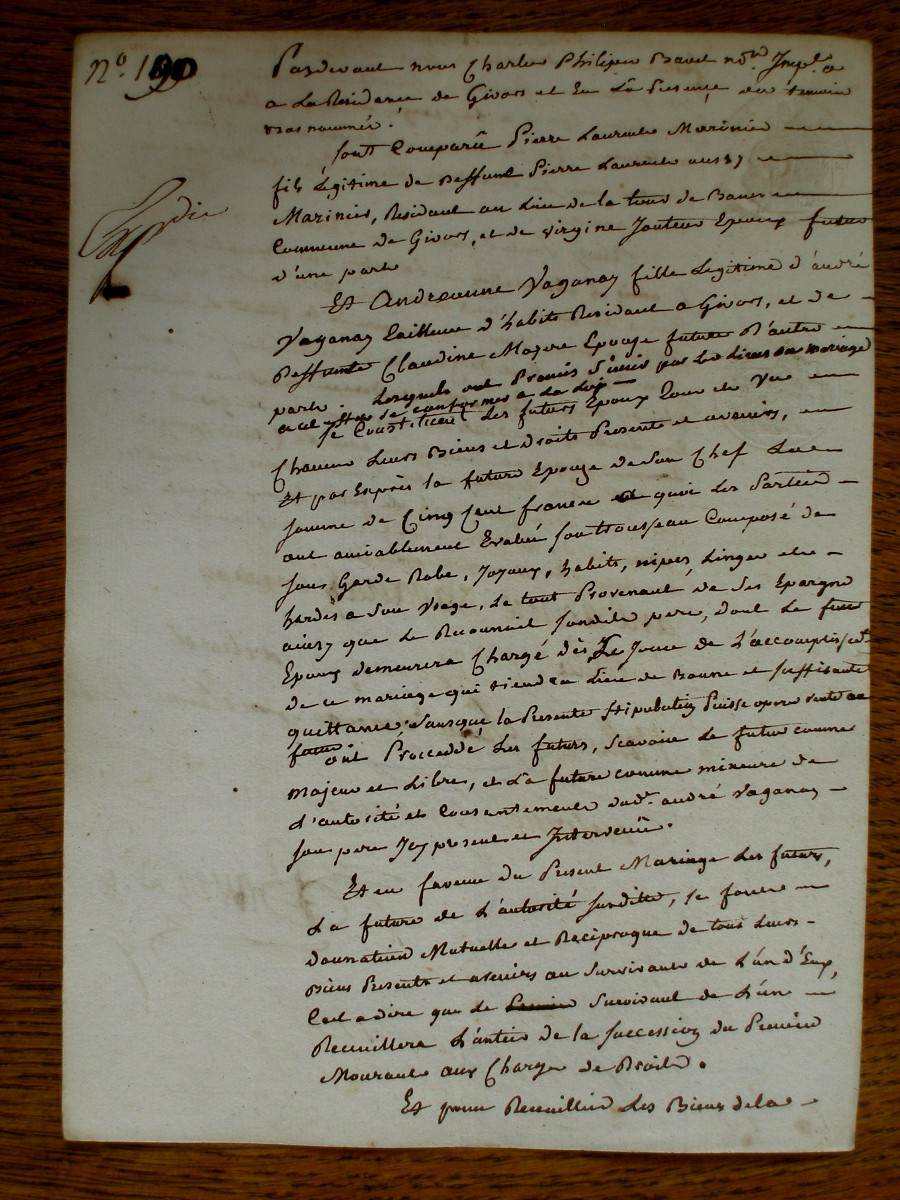 N.o 190
Pardevant nous Charles Philippe Bavet no.re Imp.al
a La Residence de Givors et En La Presence des temoins
bas nommés.
Sont Comparû Pierre Laurent Marinier
fils Légitime de deffunt Pierre Laurent aussy
Marinier, Residant au Lieu de la tour de Bans
Commune de Givors, et de virgine Jouteur Epoux futur
d'une part
Expédié
Et Andréanne Vaganay fille Légitime d'andré
Vaganay tailleur d'habits Residant a Givors, et de
deffunte Claudine Mayere Epouse future D'autre
part. Lesquels ont Promis S'unir par les Liens du mariage
et de se conformer a La Loi
se Constituent Les futurs Epoux Pour et Vu
Chacun Leurs Biens et droits Presents et avenirs,
Et par Exprès la future Epouse de Son Chef La
somme de Cinq Cent francs a quoi Les Parties
ont amiablement Evalué son trousseau Composé de
sous Garde Robe, Joyaux, habits, nipes, Linges et
hardes a Son Usage, Le tout Provenant de Ses Epargnes
ainsy que Le Reconnoit Sondit pere, dont Le futur
Epoux demeurera Chargé dès Le Jour de L'accomplissem.t
de ce mariage qui tiendra Lieu de Bonne et Suffisante
quittance, Sans que la Presente Stipulation Puisse operer vente au
futur.
ont Proceddé Les futurs, Scavoir Le futur comme
majeur et Libre, et La future comme mineure de
L'autorité et Consentement dud.t andré Vaganay
son pere Icy present et Intervenû.
Et en faveur du Present Mariage Les futurs,
La future de L'autorité Susditte, se font
donnation Mutuelle et Réciproque de tous Leurs
Biens Presents et avenirs au Survivant de L'un d'Eux,
C'est a dire que Le Survivant de L'un
Recueillera L'antier de la succession du Premier
Mourant aux Charges de Droit.
Et pour Recueillir Les Biens dela